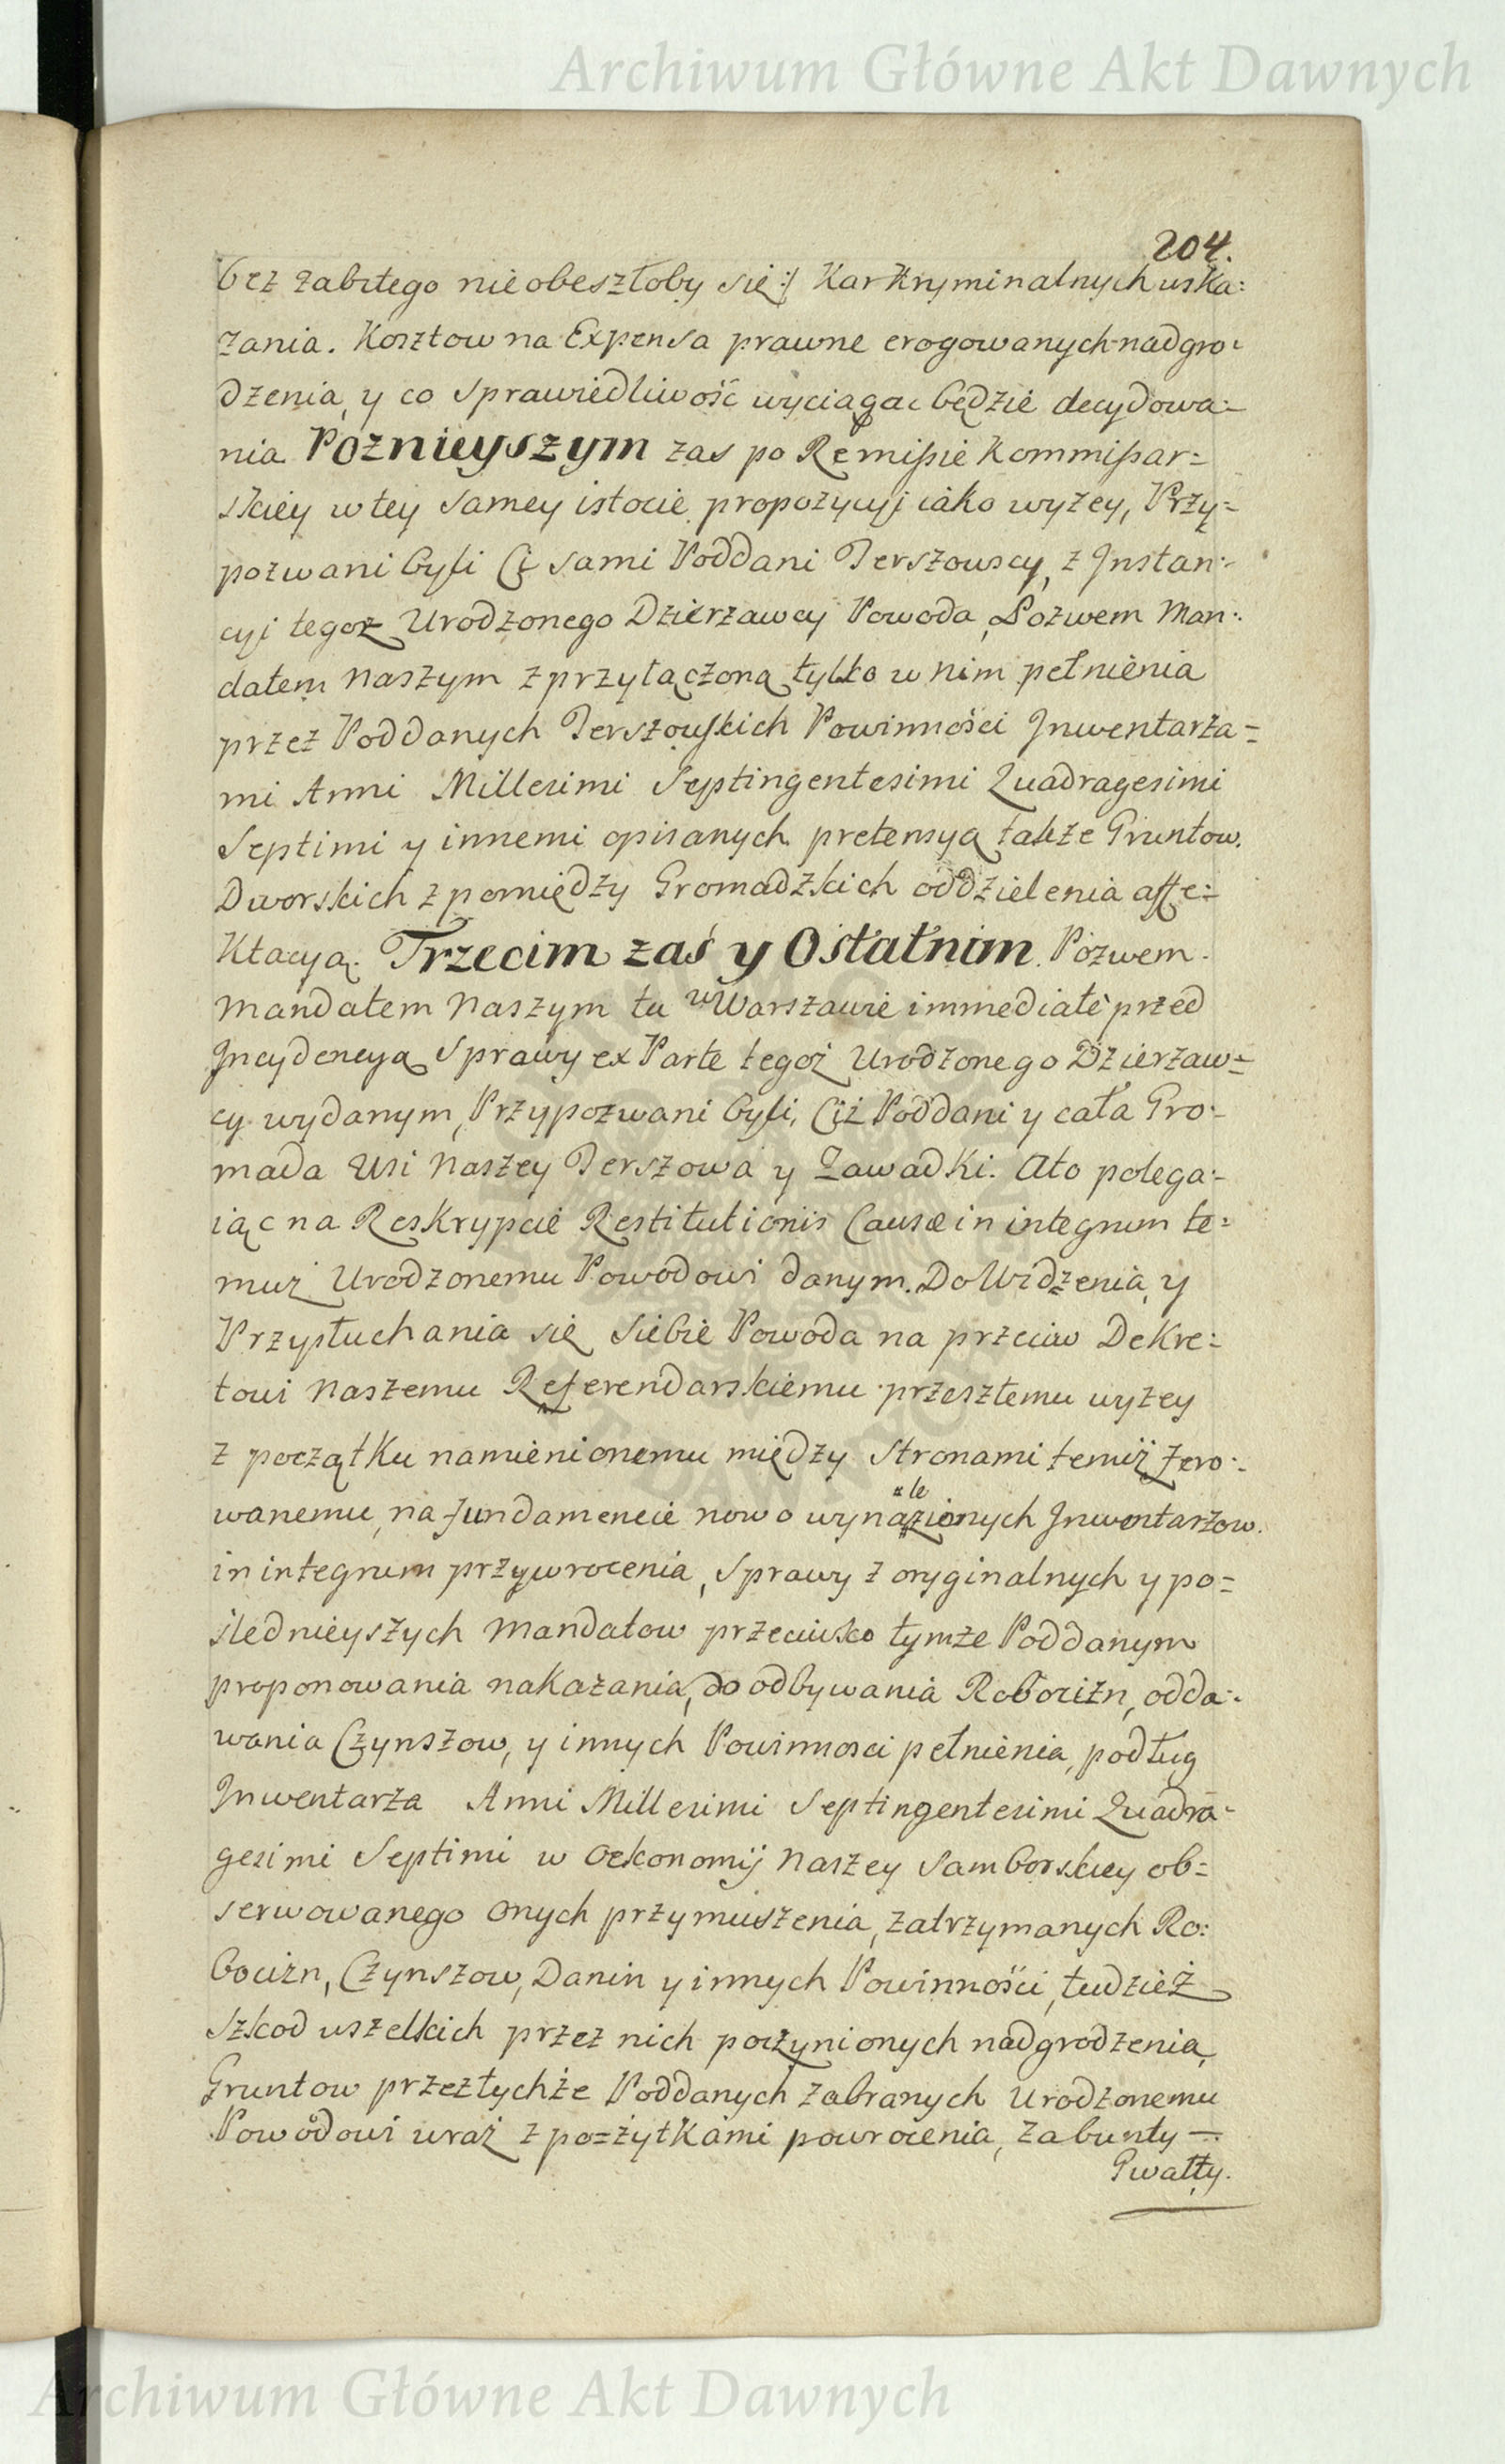 Archiwum Główne Akt Dawnych
204.
bez zabitego nieobeszłoby się :/ Kar Kryminalnych wska:
zania. Kosztow na Expensa prawne erogowanych nadgro:
dzenia, y co Sprawiedliwość wyciągac będzie decydowa=
nia Poznieyszym zas po Remissie Kommissar=
skiey w tey Samey istocie propozycyj iako wyzey, Przy=
pozwani byli Ci sami Poddani Terszowscy, z Instan:
cyi tegoz Urodzonego Dzierzawcy Powoda, Pozwem Man:
datem Naszym z przyłączoną tylko w nim pełnienia
przez Poddanych Terszowskich Powinności Inwentarza=
mi Anni Millesimi Septingentesimi Quadragesimi
Septimi y innemi opisanych pretensyą także Gruntow
Dworskich z pomiędzy Gromadzkich oddzielenia affe=
Ktacyą. Trzecim zaś y Ostatnim Pozwem
Mandatem Naszym tu w Warszawie immediate przed
Incydencyą Sprawy ex Parte tegoż Urodzonego Dzierzaw=
cy wydanym, Przypozwani byli, Ciż Poddani y cała Gro=
mada Wsi Naszey Terszowa y Zawadki. Ato polega=
iąc na Reskrypcie Restitutionis Causæ in integrum te=
muż Urodzonemu Powodowi danym. Do Widzenia, y
Przysłuchania się Siebie Powoda na przeciw Dekre=
towi Naszemu Referendarskiemu przeszłemu wyzey
z początku namienionemu między Stronami temiż fero=
wanemu, na fundamencie nowo wynalezionych Inwentarzow
in integrum przywrocenia, Sprawy z oryginalnych y po=
ślednieyszych Mandatow przeciwko tymże Poddanym
proponowania nakazania, do odbywania Robocizn, odda=
wania Czynszow, y innych Powinnosci pełnienia, podług
Inwentarza Anni Millesimi Septingentesimi Quadra=
gesimi Septimi w Oekonomij Naszey Samborskiey ob=
serwowanego onych przymuszenia, zatrzymanych Ro:
bocizn, Czynszow, Danin y innych Powinności, tudzież
Szkod wszelkich przez nich poczynionych nadgrodzenia,
Gruntow przez tychże Poddanych zabranych Urodzonemu
Powodowi wraz z po=żytkami powrocenia, za bunty —
Gwałty.
Archiwum Główne Akt Dawnych